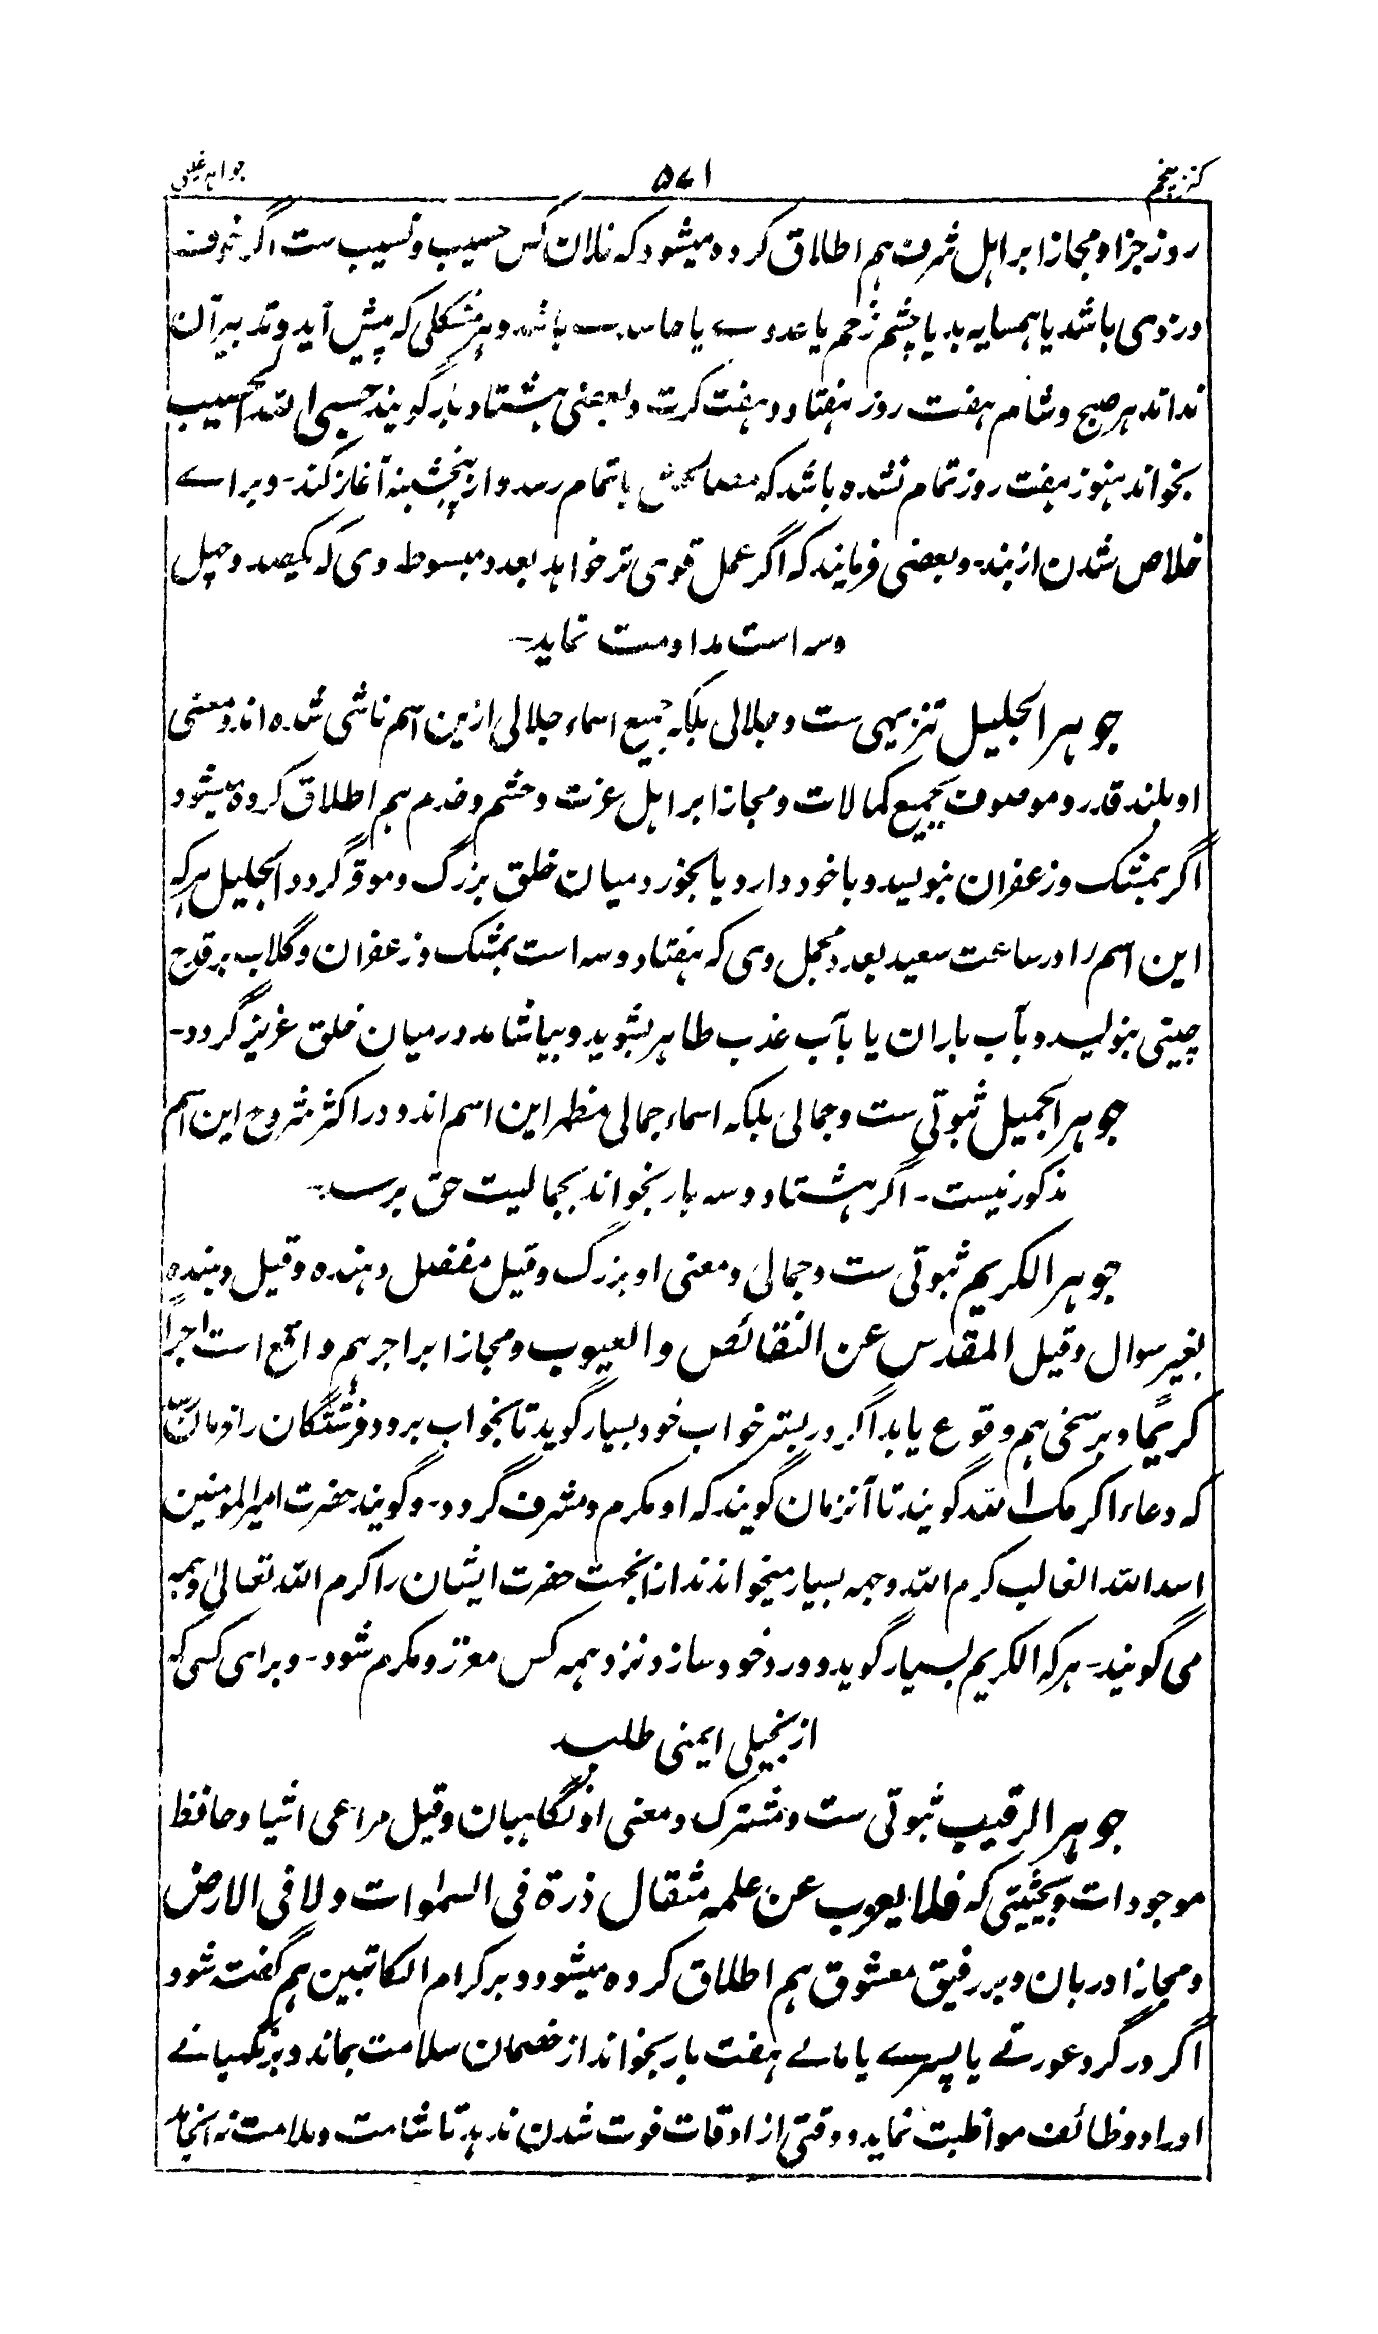 کنز پنجم
۵۷۱
جواہر غیبی
روز جزا و مجازا بر اہل شرف ہم اطلاق کردہ میشود کہ فلان کس حسیب و نسیب ست اگر خوف
دزدی باشد یا ہمسایہ بد یا چشم زخم یا عدوے یا حاسدے باشد و ہر مشکلی کہ پیش آید و تدبیر آن
نداند ہر صبح و شام ہفت روز ہفتاد و ہفت کرت و بعضی ہشتاد بار گویند حسبی اللہ الحسیب
بخواند ہنوز ہفت روز تمام نشدہ باشد کہ باتمام رسد و از پنجشنبہ آغاز کند۔ و براے
خلاص شدن از بند۔ و بعضی فرمایند کہ اگر عمل قوی تر خواہد بعدد مبسوط وی کہ یکصد و چہل
و سہ است مداومت نماید۔
جوہر الجلیل تنزیہی ست و جلالی بلکہ جمیع اسماء جلالی ازین اسم ناشی شدہ اند و معنی
او بلند قدر و موصوف بجمیع کمالات و مجازا بر اہل عزت و حشم و خدم ہم اطلاق کردہ میشود
اگر بمشک و زعفران بنویسد و با خود دارد یا بخورد میان خلق بزرگ و موقر گردد الجلیل ہرکہ
این اسم را در ساعت سعید بعدد مجمل وی کہ ہفتاد و سہ است بمشک و زعفران و گلاب بر قدح
چینی بنویسد و بآب باران یا بآب عذب طاہر بشوید و بیاشامد در میان خلق عزیز گردد۔
جوہر الجمیل ثبوتی ست و جمالی بلکہ اسماء جمالی مظہر این اسم اند و در اکثر شروح این اسم
مذکور نیست۔ اگر ہشتاد و سہ بار بخواند بجمالیت حق برسد۔
جوہر الکریم ثبوتی ست و جمالی و معنی او بزرگ و قیل مفضل دہندہ و قیل دہندہ
بغیر سوال و قیل المقدس عن النقائص و العیوب و مجازا بر اجر ہم واقع است اجراً
کریمًا و بر سخی ہم وقوع یابد اگر در بستر خواب خود بسیار گوید تا بخواب برود فرشتگان را فرمان رسد
کہ دعاء اکرمک اللہ گویند تا آنزمان گویند کہ او مکرم و مشرف گردد۔ و گویند حضرت امیر المومنین
اسد اللہ الغالب کرم اللہ وجہہ بسیار میخواندند ازانجہت حضرت ایشان را کرم اللہ تعالیٰ وجہہ
می گویند۔ ہرکہ الکریم بسیار گوید و ورد خود سازد نزد ہمہ کس معزز و مکرم شود۔ و برای کسی کہ
از بخیلی ایمنی طلبد
جوہر الرقیب ثبوتی ست و مشترک و معنی او نگاہبان و قیل مراعی اشیا و حافظ
موجودات و بحیثیتی کہ فلا یعزب عن علمہ مثقال ذرۃ فی السمٰوات ولا فی الارض
و مجازا دربان و بر رفیق معشوق ہم اطلاق کردہ میشود و بر کرام الکاتبین ہم گفتہ شود
اگر در گرد عورتے یا پسرے یا مالے ہفت بار بخواند از خصمان سلامت بماند و بر نگہبانے
اوراد و وظائف مواظبت نماید و وقتی از اوقات فوت شدن ندہد تا شامت و ملامت نہ انجامد